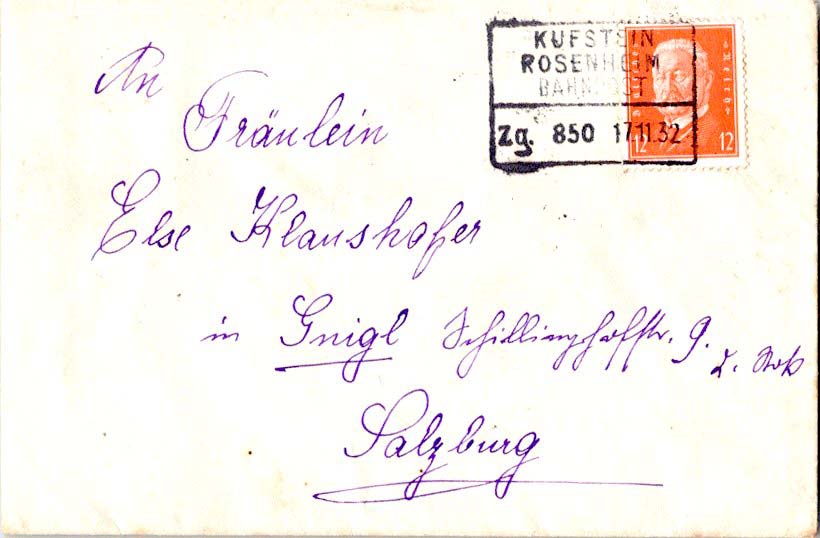 An
Fräulein
Else Klaushofer
in Gnigl Schillinghofstr. 9.
Stock
Salzburg
KUFSTEIN
ROSENHEIM
BAHNPOST
Zg. 850 17.11.32
12 12